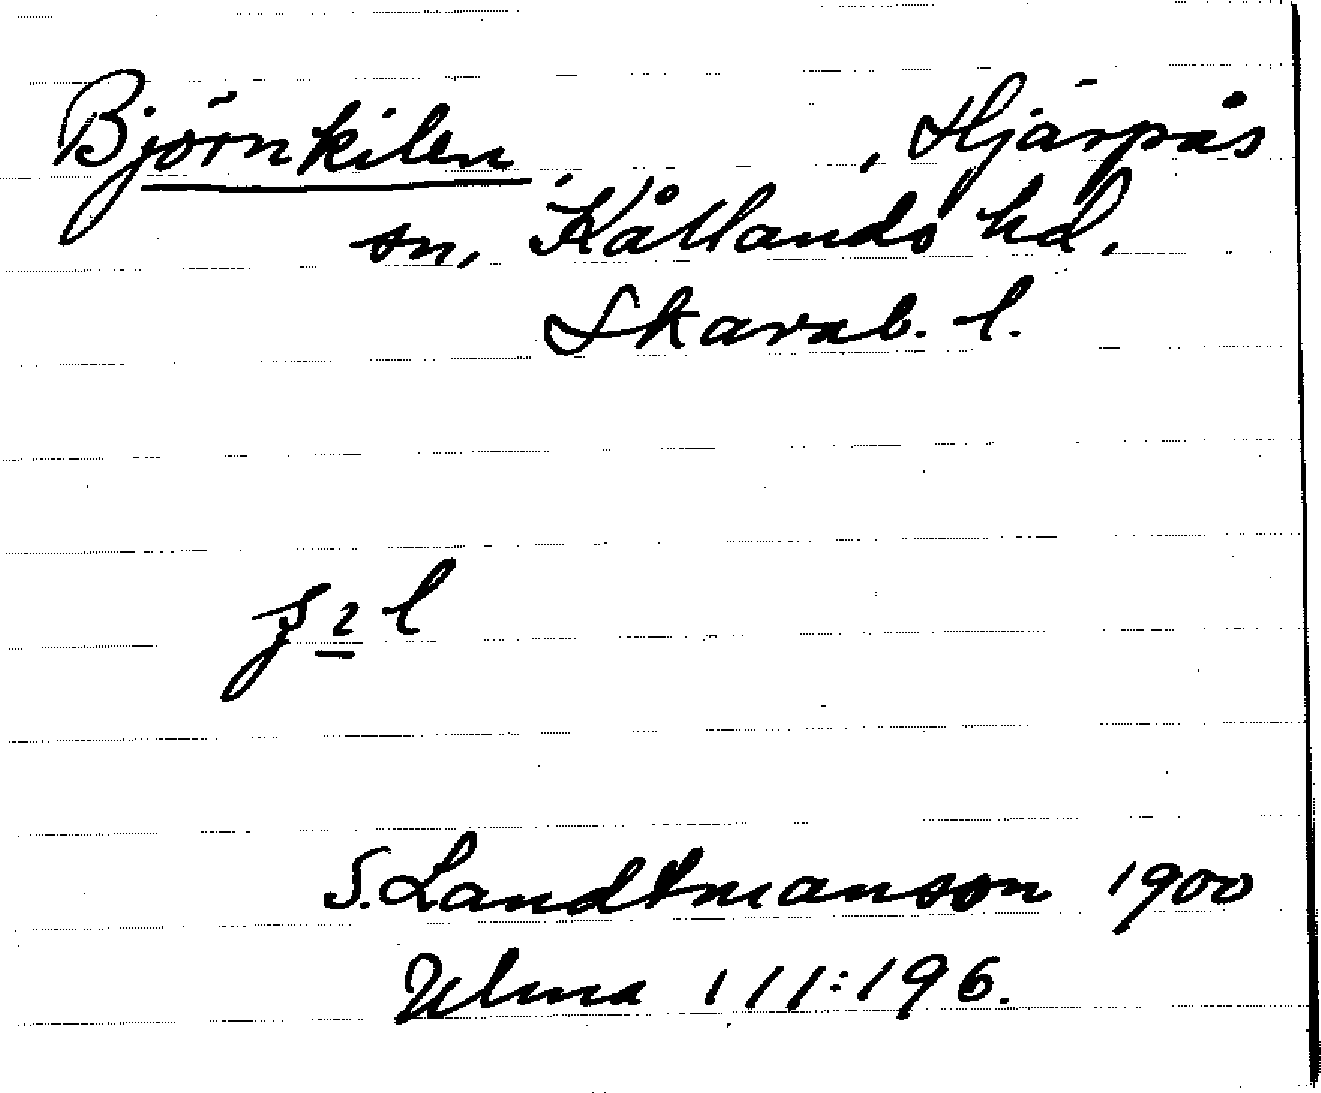 Björnkilen, Hjärpås
sn, Kållands hd,
Skarab. l.
S. Landtmanson 1900
Ulma 111:196.